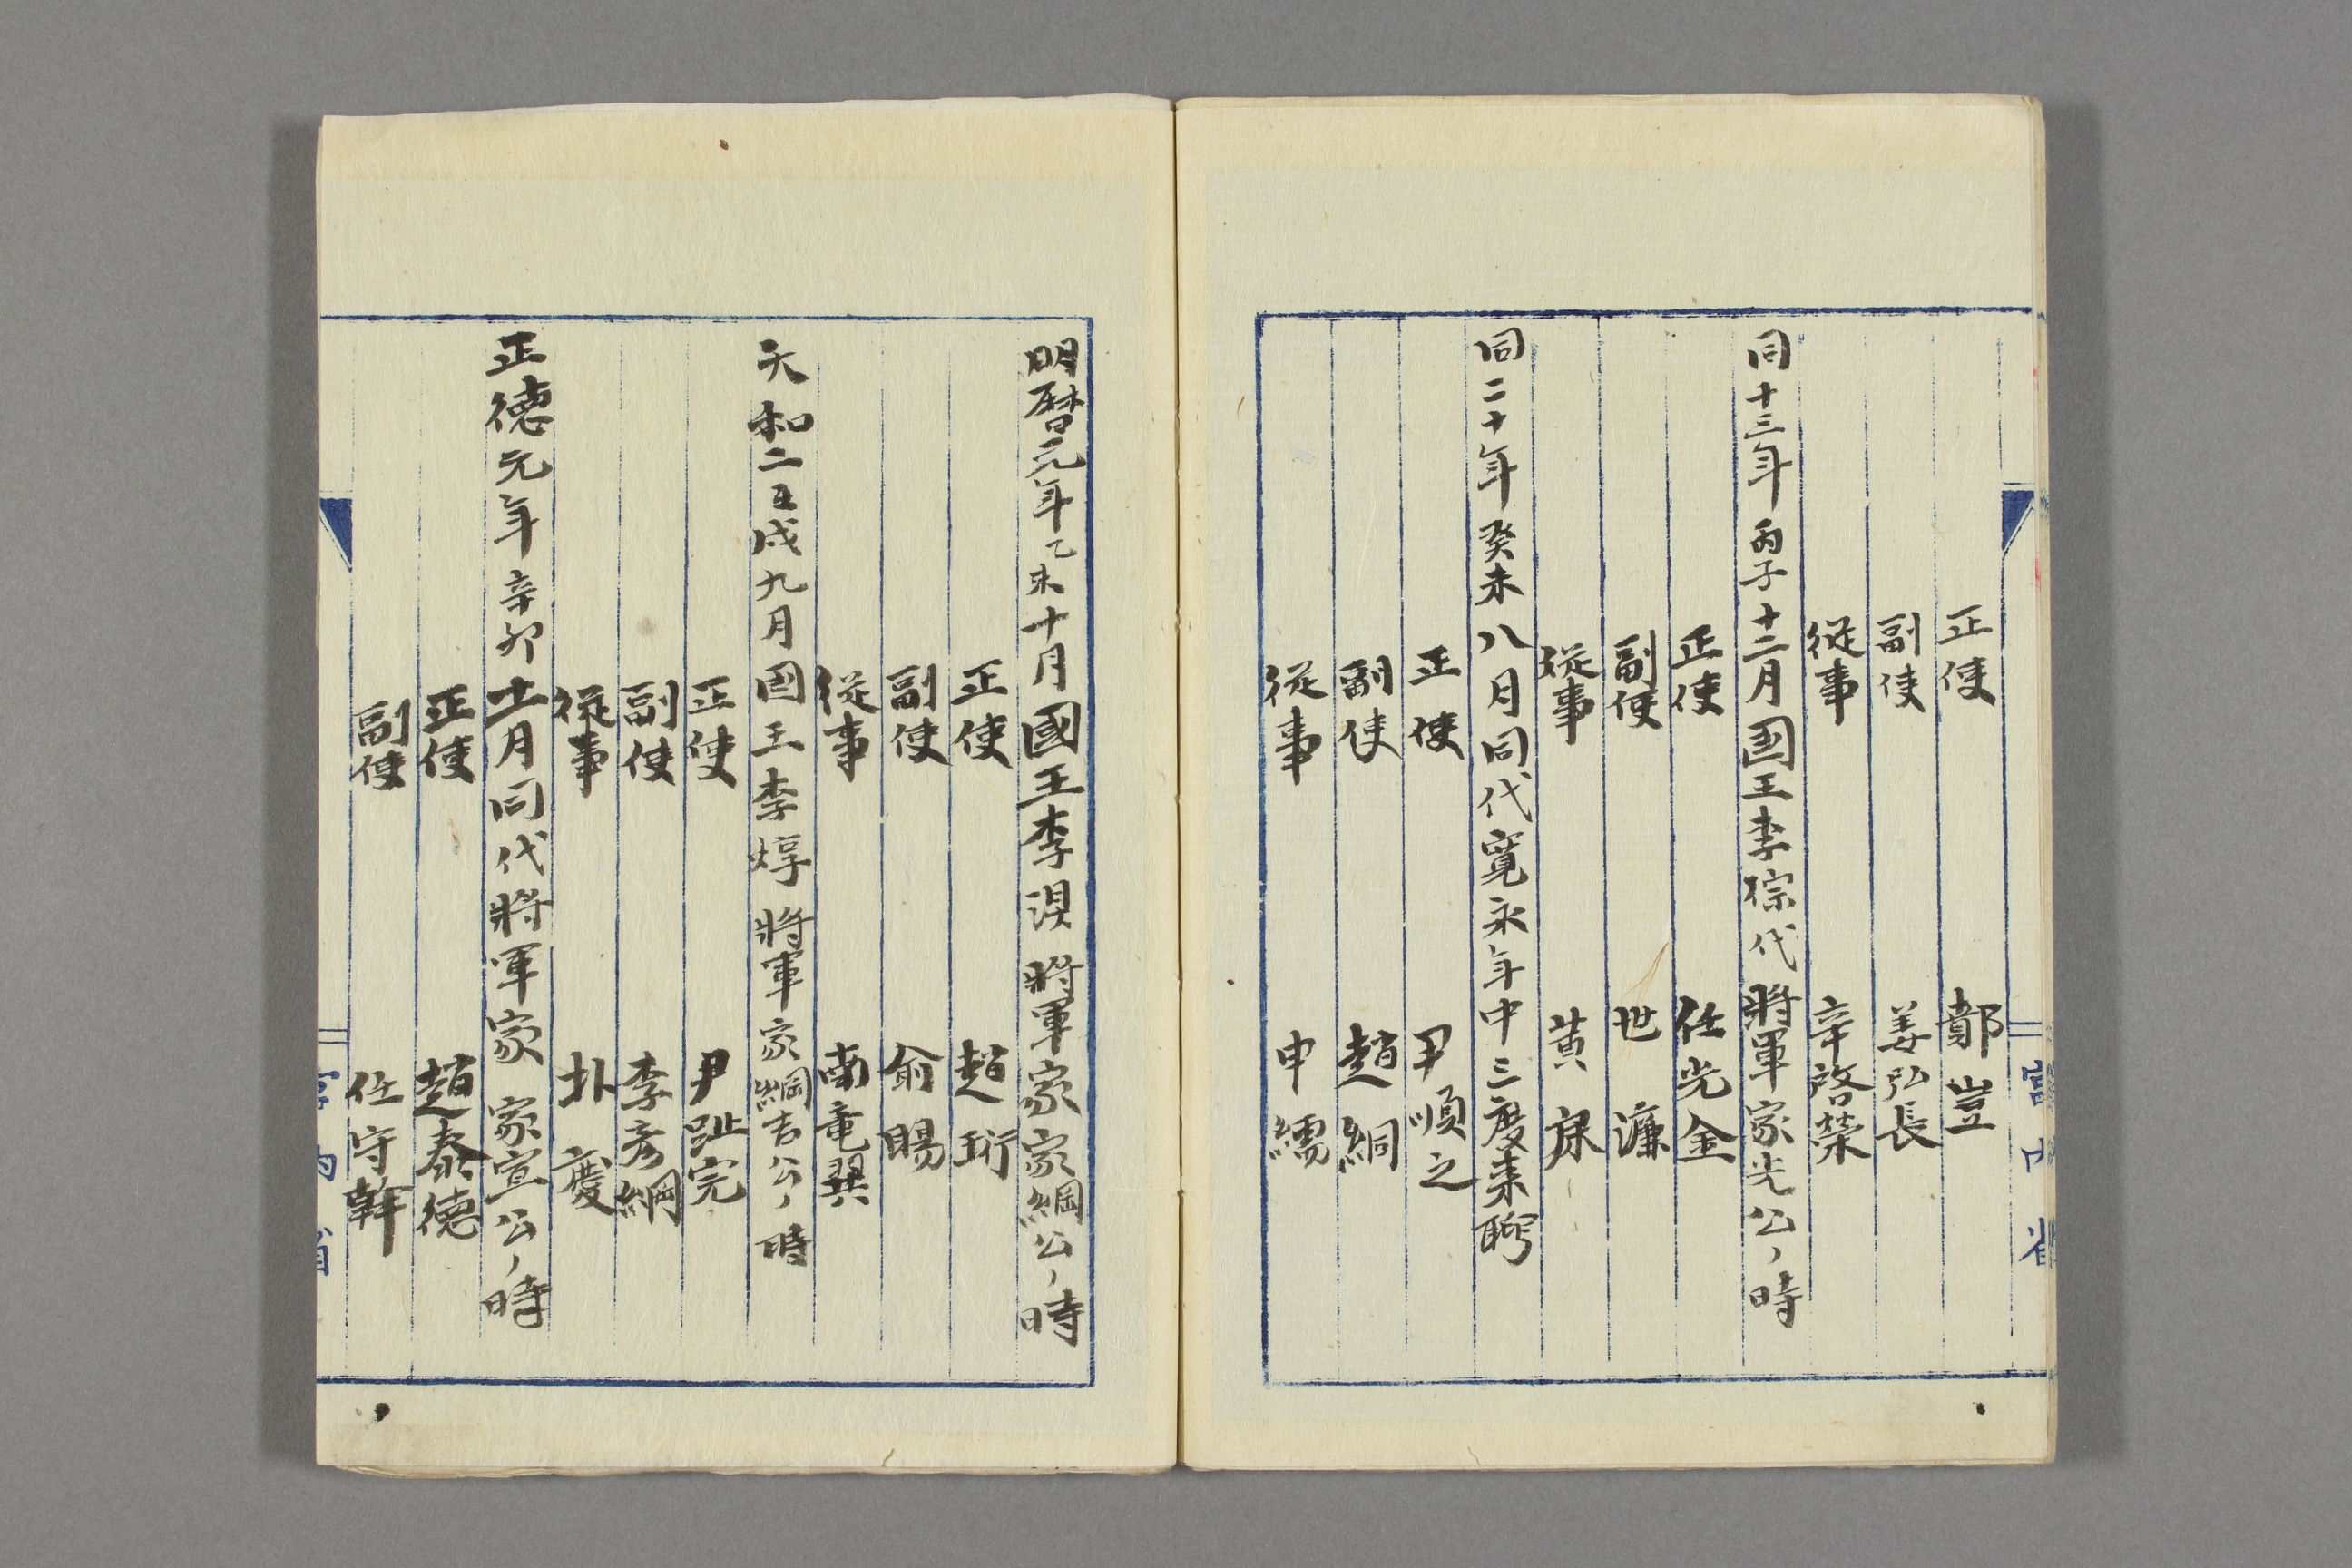 正使 鄭豈
副使 姜弘長
従事 辛啓榮
同十三年丙子十二月國王李倧代將軍家光公ノ時
正使 任光金
副使 世濂
従事 黄㦿
同二十年癸未八月同代寛永年中三度来聘
正使 尹順之
副使 趙絅
従事 申繻
宮内省
明暦元年乙未十月國王李淏 將軍家家綱公ノ時
正使 趙珩
副使 兪瑒
従事 南竜翼
天和二壬戌九月國王李焞 將軍家綱吉公ノ時
正使 尹趾完
副使 李彦綱
従事 朴慶
正徳元年辛卯十一月同代將軍家 家宣公ノ時
正使 趙泰徳
副使 任守幹
宮内省